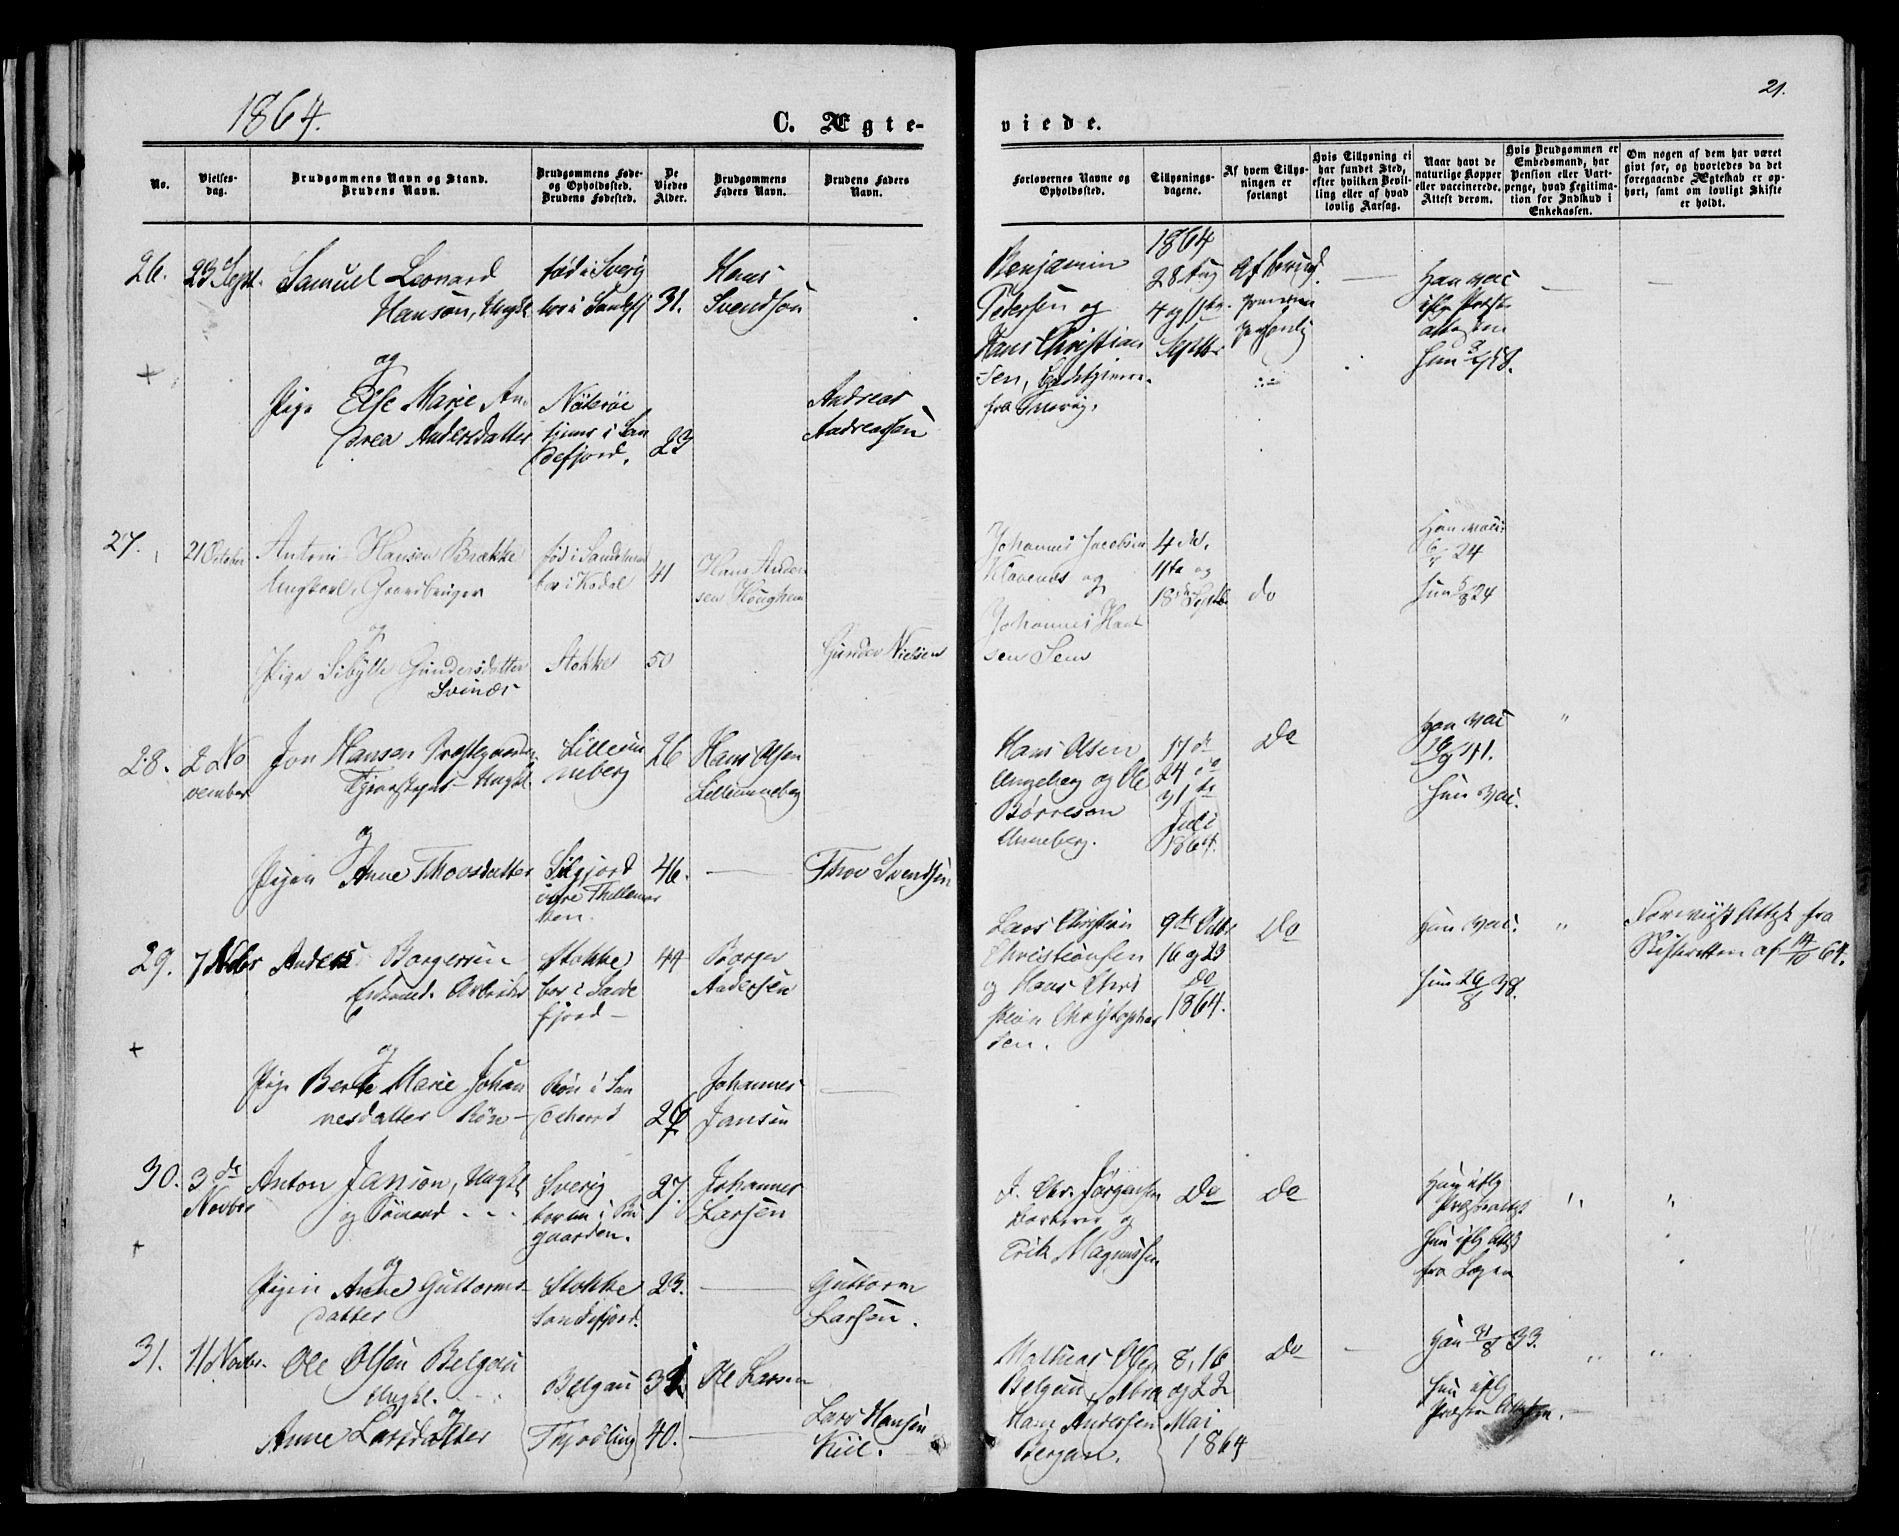 1864.
C. Ægte-
viede.
21.
No.
Vielses-
dag.
Brudgommens Navn og Stand.
Brudens Navn.
Brudgommens Føde-
og Opholdssted.
Brudens Fødested.
De
Viedes
Alder.
Brudgommens
Faders Navn.
Brudens Faders
Navn.
Forlovernes Navne og
Opholdssted.
Tillysnings-
dagene.
Af hvem Tillys-
ningen er
forlangt
Hvis Tillysning ei
har fundet Sted,
efter hvilken Bevil-
ling eller af hvad
lovlig Aarsag.
Naar havt de
naturlige Kopper
eller vaccinerede.
Attest derom.
Hvis Brudgommen er
Embedsmand, har
Pension eller Vart-
penge, hvad Legitima-
tion for Indskud i
Enkekassen.
Om nogen af dem har været
givt for, og hvorledes da det
foregaaende Ægteskab er op-
hørt, samt om lovligt Skifte
er holdt.
26.
23 Sept.
Samuel Leonard
Hanson, Ungk
og
Pige Else Marie An-
drea Andersdatter
fød i Sverig
bor i Sandefj
Nøterøe
tjener i San
defjord.
31.
23
Hans
Svendson
Andreas
Andreassen
Benjamin
Pedersen og
Hans Christian
sen,
fra Sverig.
1864
28 Aug
4 og 11te
Septbr
Af Brud-
gommen
personlig
Han vac
iflg Præst
attesten
27.
21 October
Antoni Hansen Brække
Ungkarl, Gaardbruger
og
Pige Sibylle Gundersdatter
Svinæs
fød i Sandeherred
bor i Kodal
Stokke
41
50
Hans Ander
sen Houghem
Gunder Nielsen
Johannes Jacobsen
Klavenes og
Johannes Han
sen Sem
4de,
11te og
18de Septb.
do
Han vac:
24
Hun 5/8 24
28.
2 No
vember
Jon Hansen
Ungk.
og
Pigen Anne Thorsdatter
Lilleun
neberg
Silgjord
øvre Thellemar
ken.
26
46.
Hans Olsen
Lilleunneberg
Thor Svendsen
Hans Olsen
Unneberg og Ole
Børresen
Unneberg.
17de
24de
31te
Juli
1864.
Do
Han vac
41.
Hun vac.
"
29.
7 Novbr
Anders Borgersen
Enkemd. Arbeider
og
Pige Berte Marie Johan
nesdatter Röre
Stokke
bor i Sande
fjord
Röre i San
deherred
44
26
Borger
Andersen
Johannes
Jansen
Lars Christian
Christiansen
og Hans Chri
stian Christopher
sen.
9de Octbr
16 og 23
do
1864.
Do
Han vac.
Hun 26/8 38.
"
Forevist Attest fra
Skifteretten af 14/10 64.
30.
3de
Novbr
Anton Janson, Ungk
og Sømand
og
Pigen Anne Guttorms-
datter
Sverig
gaarden.
Stokke
Sandefjord.
27.
23.
Johannes
Larsen
Guttorm
Larsen.
J. Chr. Jørgensen
og
Erik Magnussen
Do
Do
Han iflg
Præsteattest
Hun iflg Attest
fra Lægen
"
"
31.
11 Novbr.
Ole Olsen Belgau
Ungk.
og
Anne Larsdatter
Belgau
Thjodling
39
40.
Ole Larsen
Lars Hansen
Kiil.
Mathias Olsen
Belgau
Hans Andersen
Bergan.
8, 16
og 22
Mai
1864
Do
Han 31/8 33.
Hun iflg
Præste Attesten.
"
"